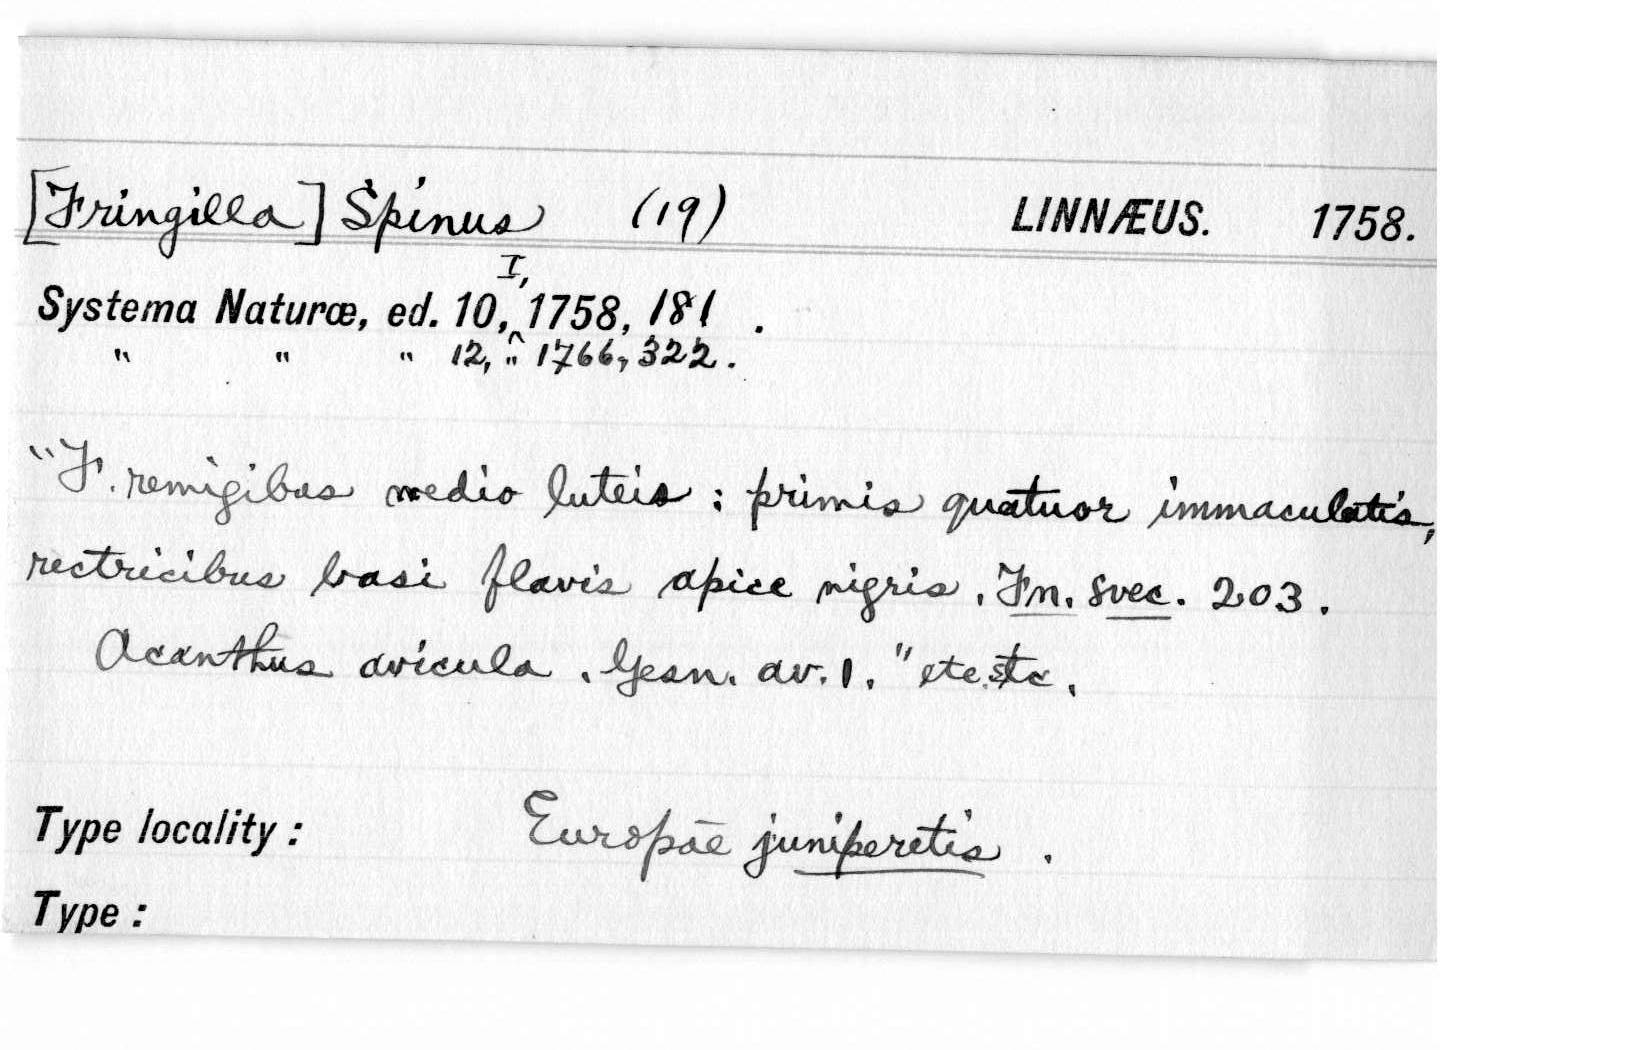 [Fringilla] Spinus (19) LINNÆUS. 1758.
Systema Naturæ, ed. 10, I, 1758, 181 .
" " " 12, " 1766, 322.
"F. remigibus medio luteis : primis quatuor immaculatis,
rectricibus basi flavis apice nigris. Fn. svec. 203.
Acanthus avicula. Gesn. av. 1." etc. etc.
Type locality : Europae juniperetis .
Type :